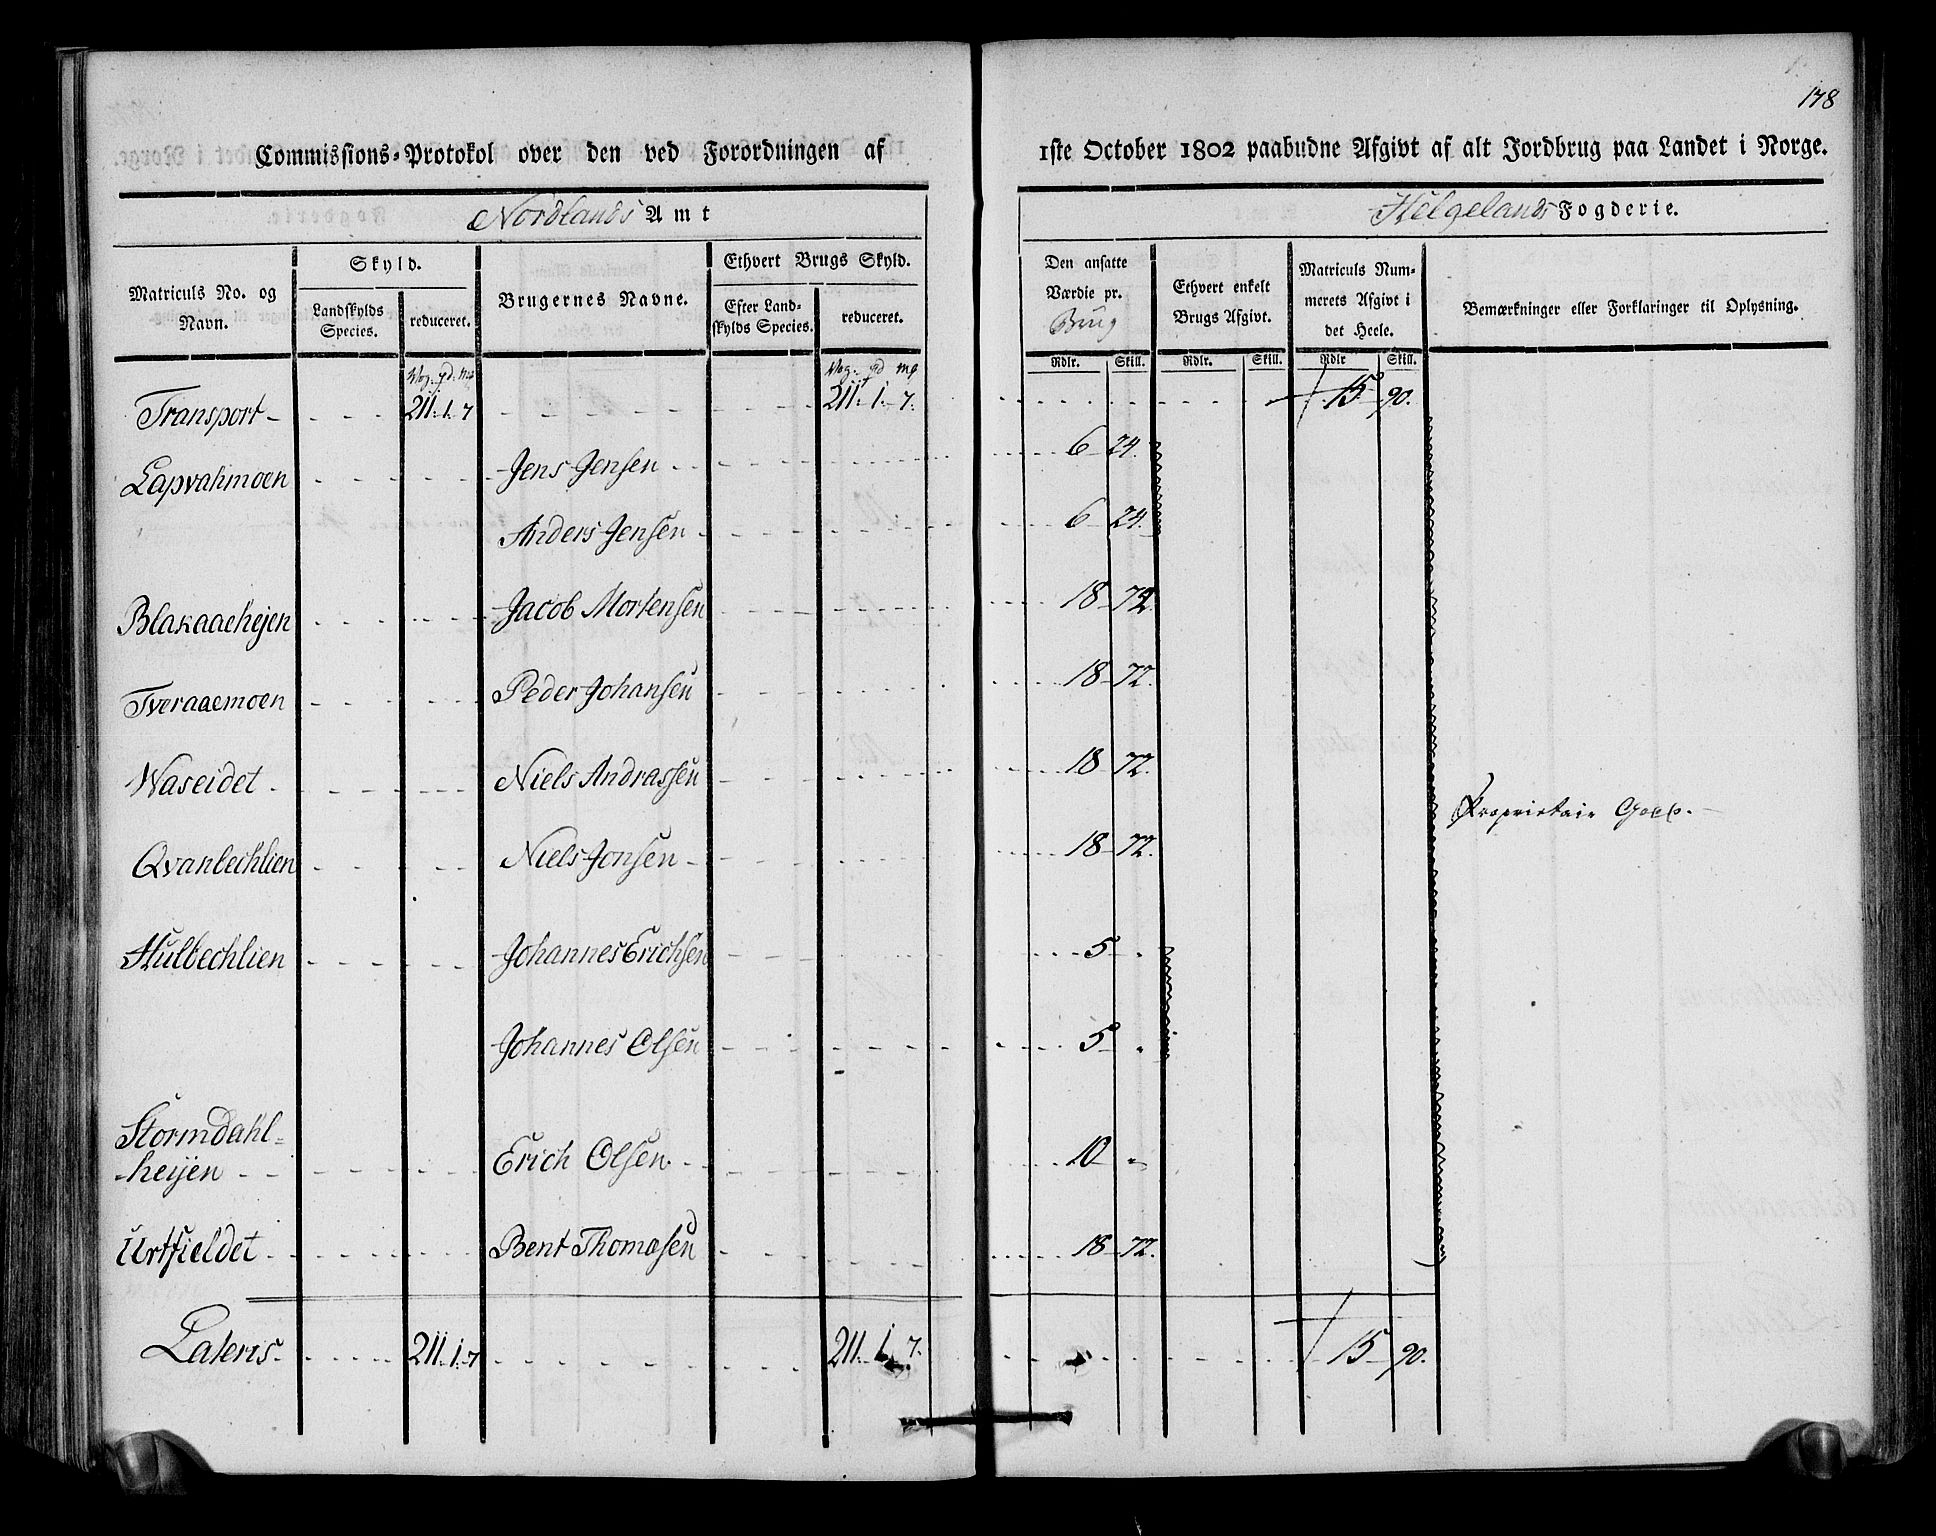 178
Commissions-Protokol over den ved Forordningen af 1ste October 1802 paabudne Afgivt af alt Jordbrug paa Landet i Norge.
Nordlands Amt Helgelands Fogderie.
Matriculs No. og Navn. Skyld. Landskylds Species. reduceret. Brugernes Navne. Ethvert Brugs Skyld. Efter Landskylds Species. reduceret. Den ansatte Værdie pr. Brug Ethvert enkelt Brugs Afgivt. Matriculs Nummerets Afgivt i det Heele. Bemærkninger eller Forklaringer til Oplysning.
Wog. pd. mg Wog. pd mg Rdlr. Skill. Rdlr. Skill. Rdlr Skill.
Transport 211. 1. 7 211. 1. 7. 15 90.
Lapvahmoen Jens Jensen 6 24.
Anders Jensen 6 24.
Blakaaehejen Jacob Mortensen 18 72.
Tveraaemoen Peder Johansen 18 72.
Waseidet Niels Andrassen 18 72.
Proprietair
Qvanbechlien Niels Jonsen 18 72.
Hulbechlien Johannes Erichsen 5 .
Johannes Olsen 5 .
Stormdahl-
heijen Erich Olsen 10 -
Urtfieldet Bent Thomasen 18 72.
Lateris 211. 1. 7 211. 1. 7. 15 90.